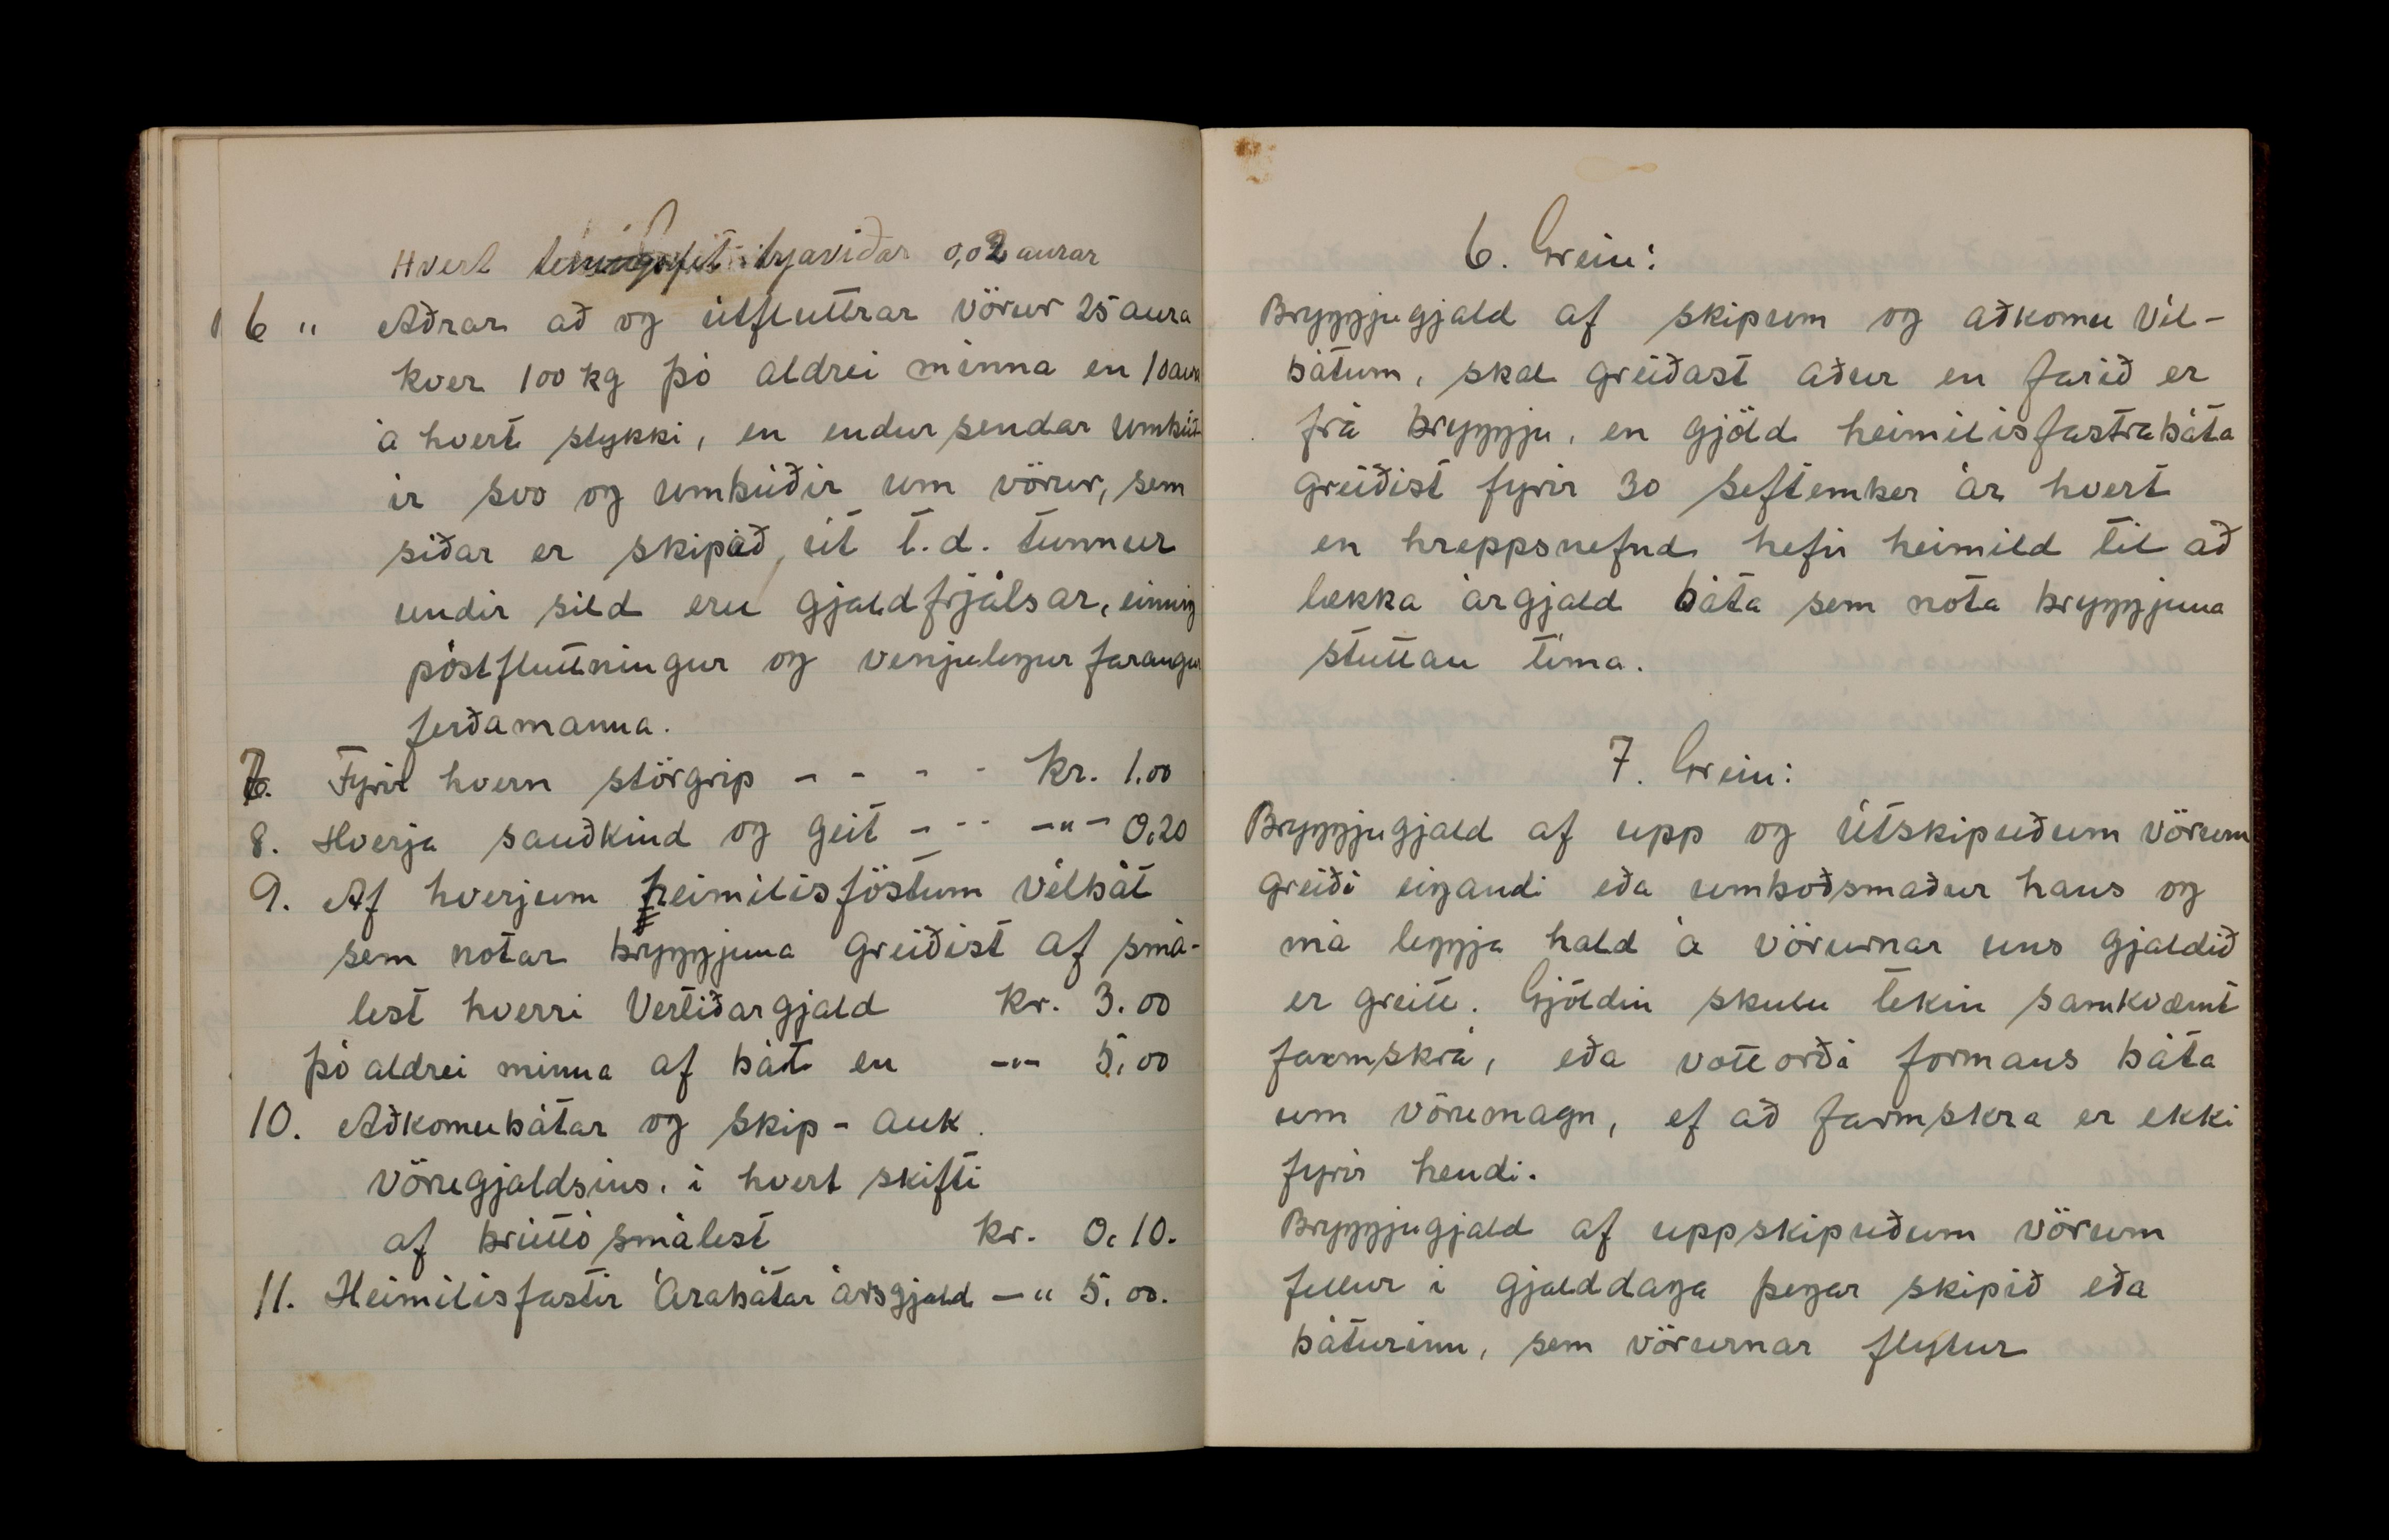 Hvert teningsfet trjáviðar 0,02 aurar
6 " Aðrar að og útfluttrar vörur 25 aura
hver 100 kg þó aldrei minna en 10 aura
á hvert stykki, en endursendar umbúð-
ir svo og umbúðir um vörur, sem
síðar er skipað út t.d. tunnur
undir síld eru gjaldfrjálsar, einnig
póstfluttningur og venjulegur farangur
ferðamanna.
7. Fyrir hvern stórgrip - - - - kr. 1.00
8. Hverja sauðkind og geit - - - -"- 0.20
9. Af hverjum heimilisföstum vélbát
sem notar bryggjuna greiðist af smá-
lest hverri Vertíðargjald kr. 3.00
þó aldrei minna af bát en -"- 5.00
10. Aðkomubátar og skip - auk
vörugjaldsins. í hvert skifti
af brúttó smálest kr. 0.10.
11. Heimilisfastir Árabátar ársgjald -" 5.00.
6. Grein:
Bryggjugjald af skipum og aðkomu vél-
bátum, skal greiðast aður en farið er
frá bryggju, en gjöld heimilisfastra báta
greiðist fyrir 30 seftember ár hvert
en hreppsnefnd hefir heimild til að
lækka árgjald báta sem nota bryggjuna
stuttan tíma.
7. Grein:
Bryggjugjald af upp og útskipuðum vörum
greiði eigandi eða umboðsmaður hans og
má leggja hald á vörurnar uns gjaldið
er greitt. Gjöldin skulu tekin samkvæmt
farmskrá, eða vottorði formans báta
um vörumagn, ef að farmskra er ekki
fyrir hendi.
Bryggjugjald af uppskipuðum vörum
fellur í gjalddaga þegar skipið eða
báturinn, sem vörurnar flytur